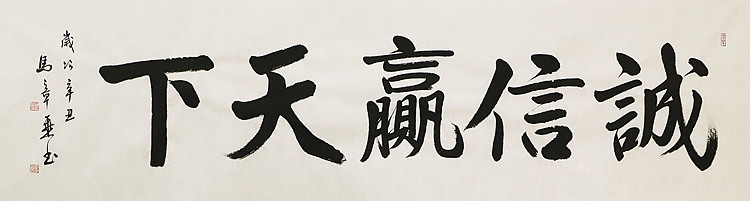 誠信贏天下
歲次辛丑
馬章乘書